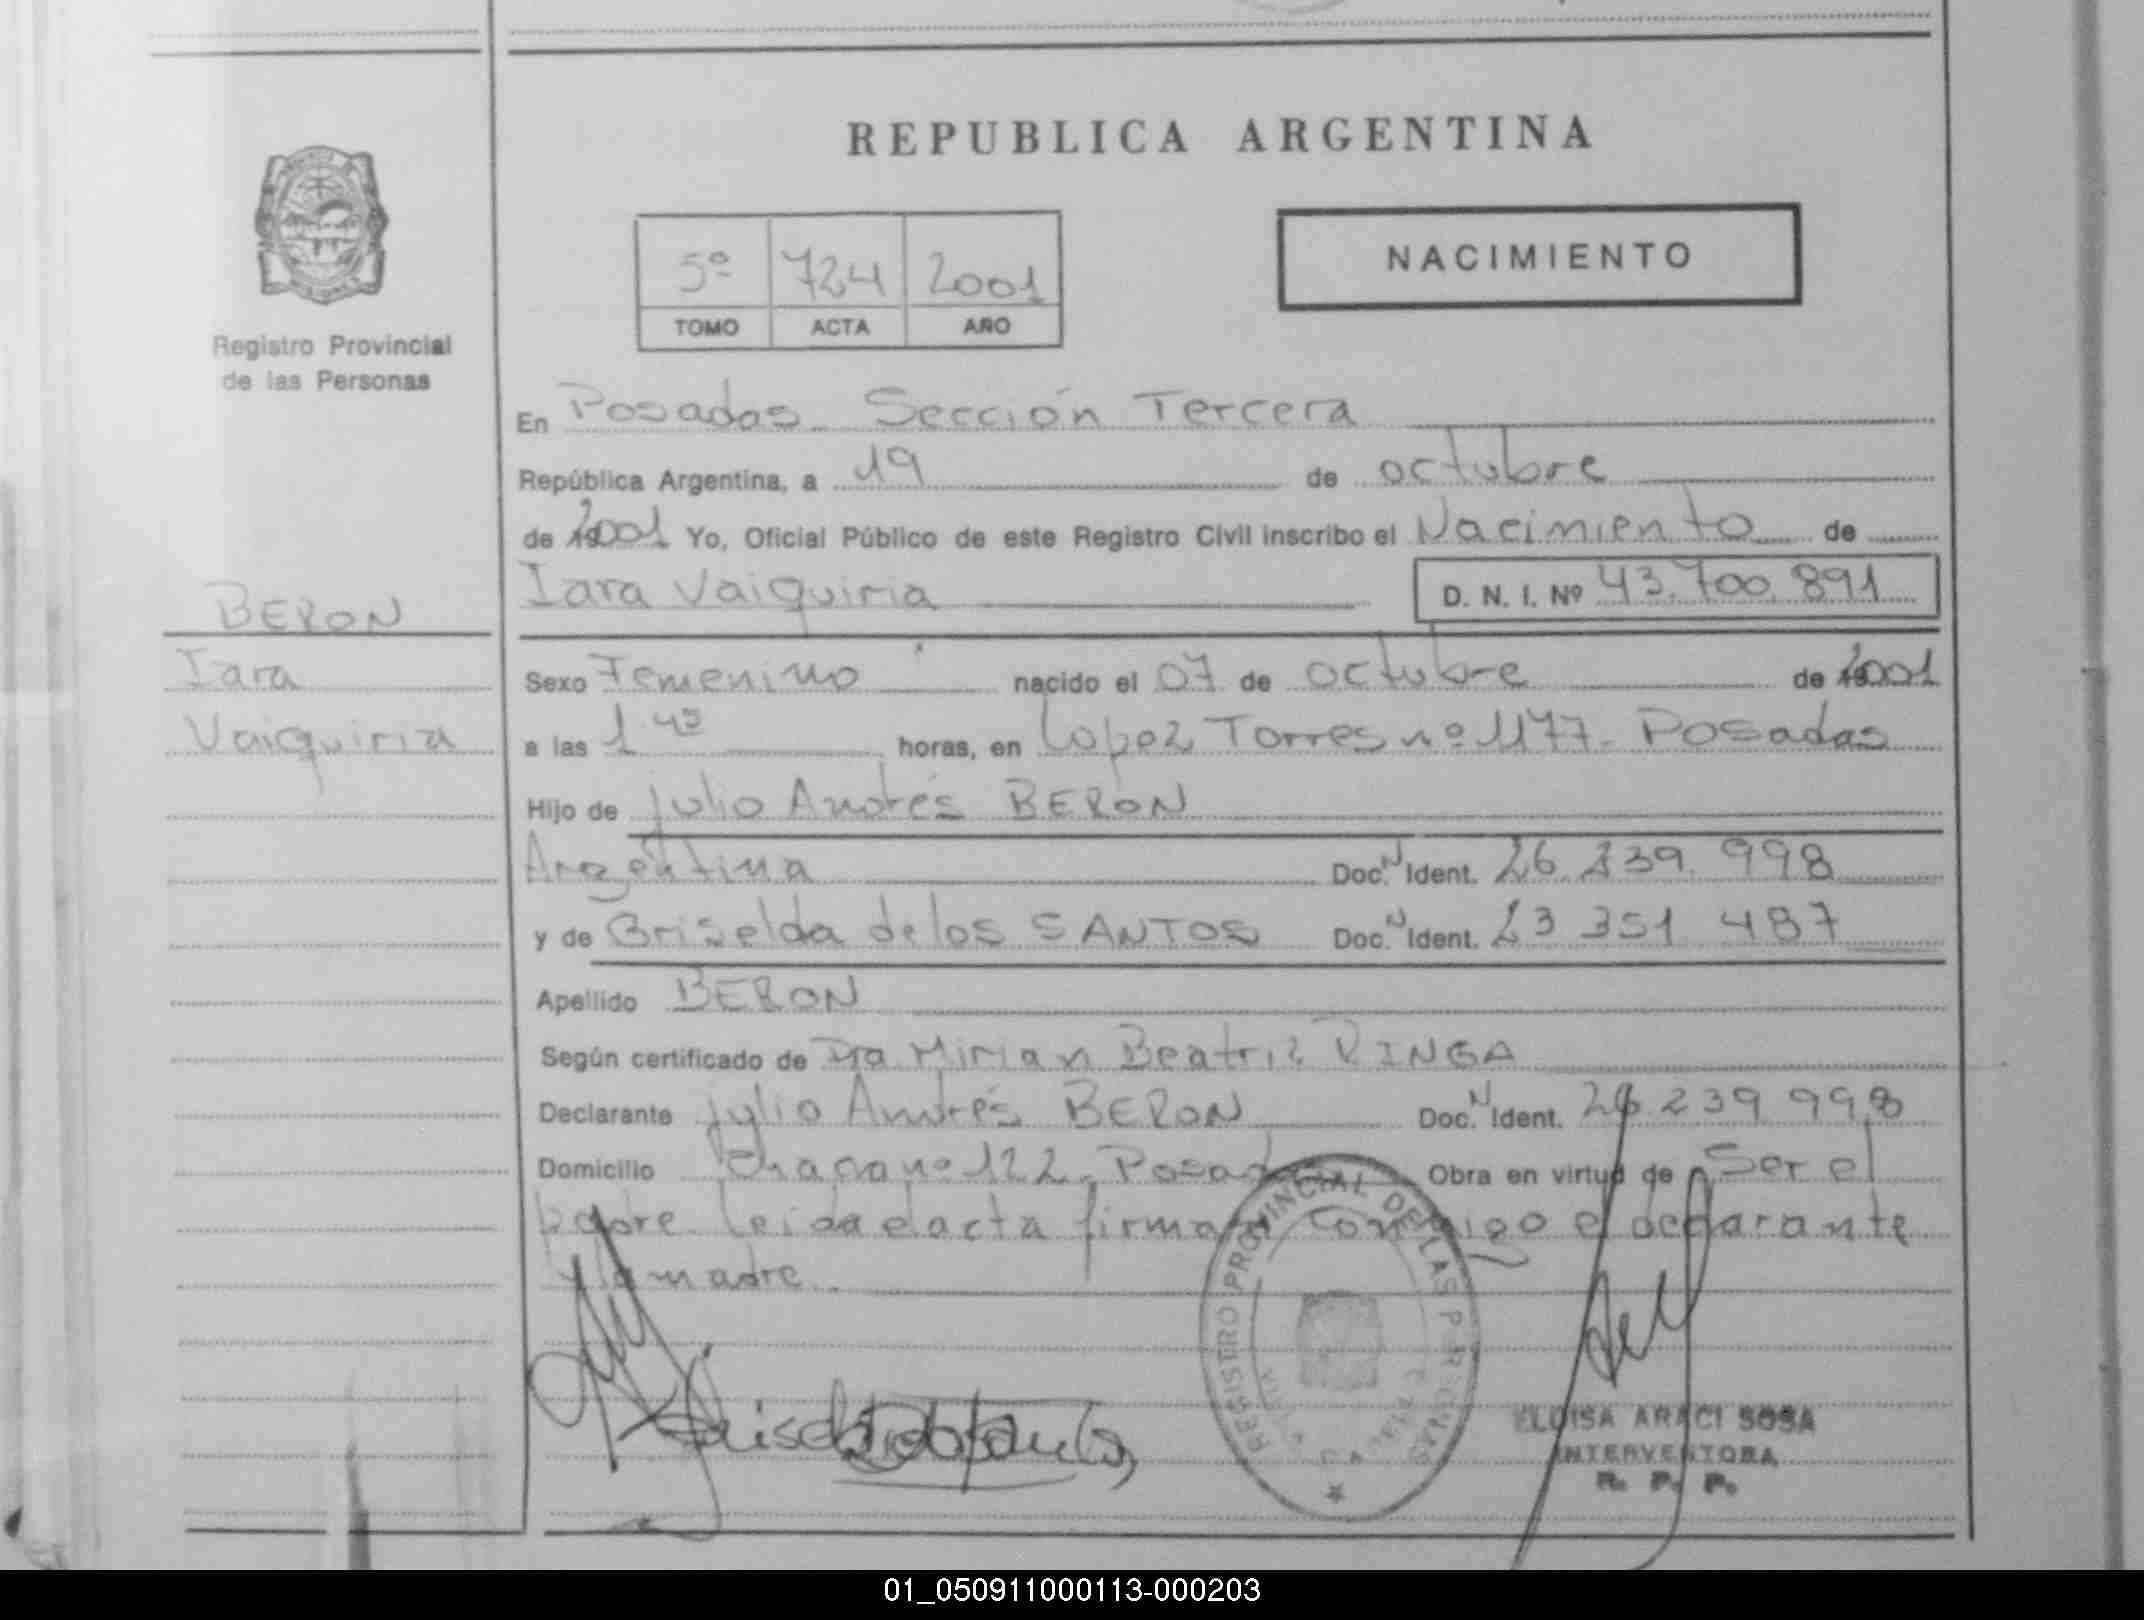 REPUBLICA ARGENTINA
NACIMIENTO
5º 724 2001
TOMO ACTA AÑO
Registro Provincial
de las Personas
En Posadas Sección Tercera
República Argentina, a 19 de octubre
de 2001 Yo, Oficial Público de este Registro Civil inscribo el Nacimiento de
Iara Vaiquiria D. N. I. Nº 43.700.891
BERON
Iara
Vaiquiria
Sexo Femenino nacido el 07 de octubre de 2001
a las 1 horas, en Lopez Torres nº 1177. Posadas
Hijo de Julio Andrés BERON
Argentina Doc. N Ident. 26 239 998
y de Griselda de los SANTOS Doc. N Ident. 23 351 487
Apellido BERON
Según certificado de Dra Mirian Beatriz RINGA
Declarante Julio Andrés BERON Doc. N Ident. 26 239 998
Domicilio Chaco nº 122. Posadas Obra en virtud de Ser el
padre leida el acta firman conmigo el declarante
y la madre
REGISTRO PROVINCIAL DE LAS PERSONAS
ELOISA ARACI SOSA
INTERVENTORA
R. P. P.
01_050911000113-000203